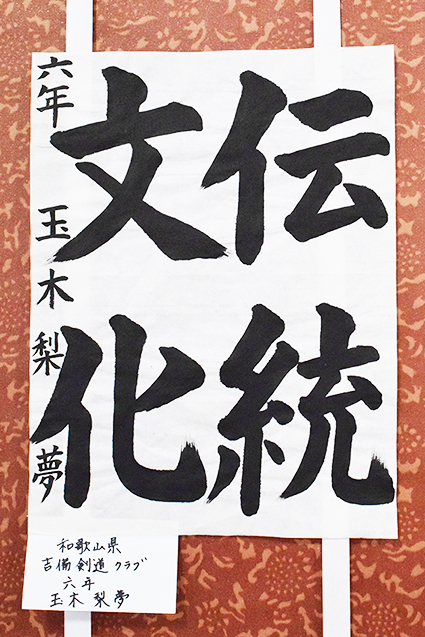 伝統
文化
六年 玉木梨夢
和歌山県
吉備剣道クラブ
六年
玉木梨夢